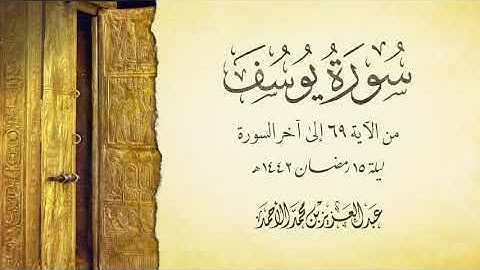 سُورَةُ يُوسُفَ
من الآية ٦٩ إلى آخر السورة
ليلة ١٥ رمضان ١٤٤٢هـ
عبد العزيز بن محمد الأحمد